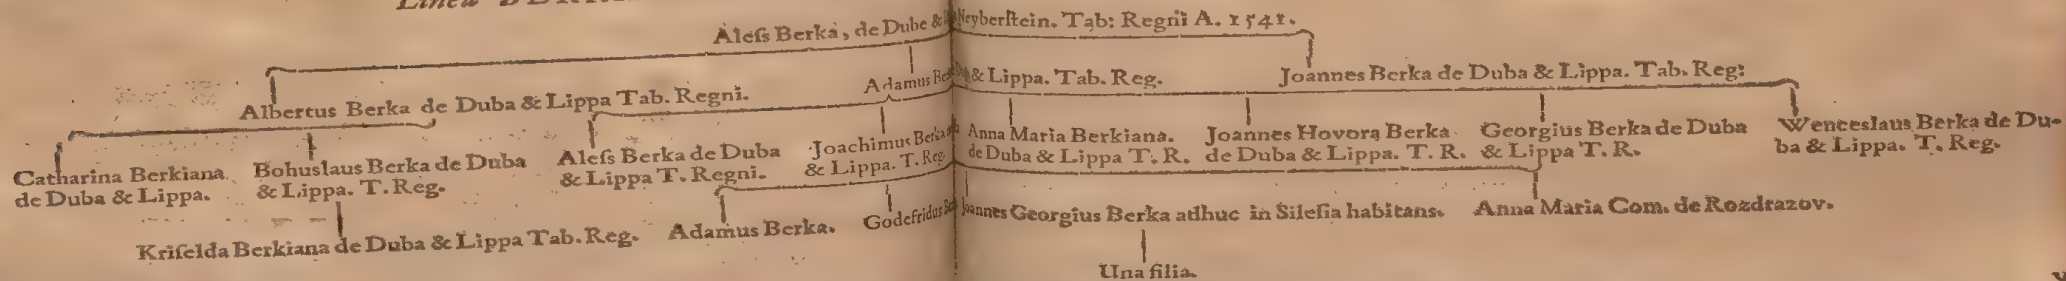 Linea
Alefs Berka, de Dube & Neyberſtein. Tab: Regni A. 1541.
Albertus Berka de Duba & Lippa Tab. Regni.
Adamus & Lippa. Tab. Reg.
Joannes Berka de Duba & Lippa. Tab. Reg:
Catharina Berkiana
de Duba & Lippa.
Bohuslaus Berka de Duba
& Lippa. T. Reg.
Aleſs Berka de Duba
& Lippa T. Regni.
Joachimus Berka
& Lippa. T. Reg.
Anna Maria Berkiana.
de Duba & Lippa T. R.
Joannes Hovora Berka
de Duba & Lippa. T. R.
Georgius Berka de Duba
& Lippa T. R.
Wenceslaus Berka de Du-
ba & Lippa. T. Reg.
Kriſelda Berkiana de Duba & Lippa Tab. Reg.
Adamus Berka.
Godefridus
Joannes Georgius Berka adhuc in Sileſia habitans.
Anna Maria Com. de Rozdrazov.
Una filia.